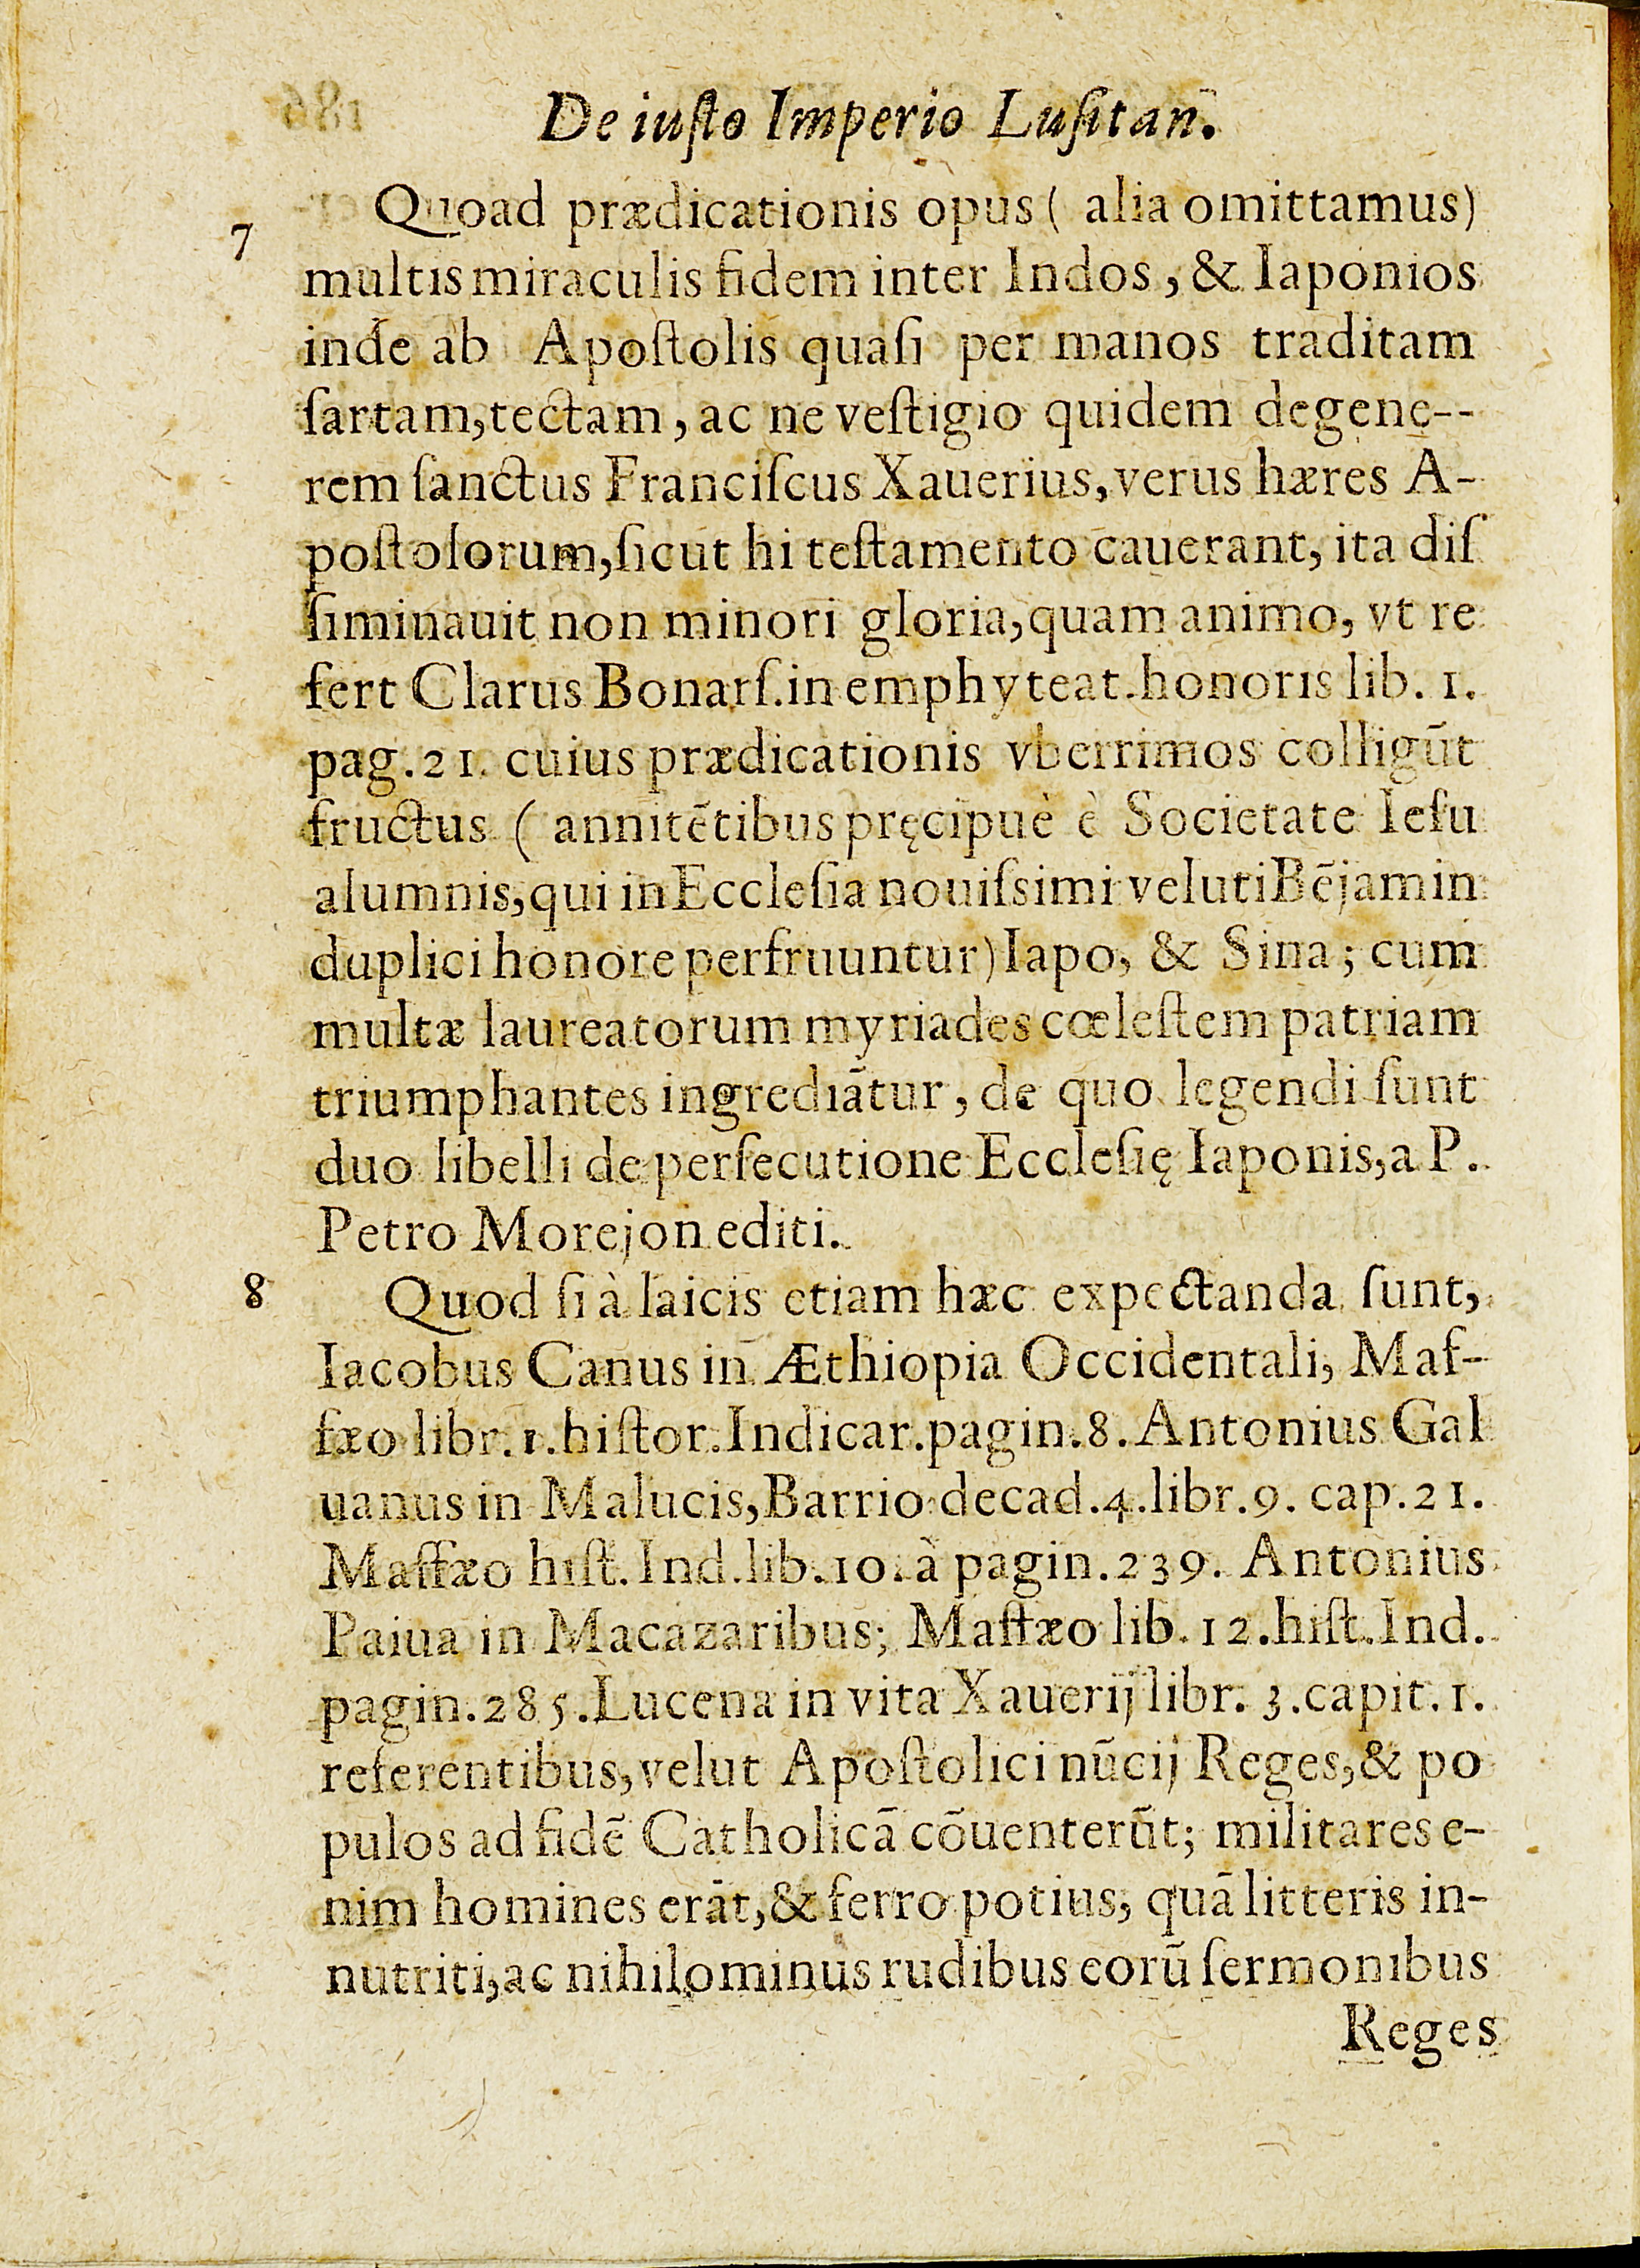 De iuſto Imperio Luſitan̄.
7 Quoad prædicationis opus ( alia omittamus)
multis miraculis fidem inter Indos, & Iaponios
inde ab Apoſtolis quaſi per manos traditam
ſartam, tectam, ac ne veſtigio quidem degene--
rem ſanctus Franciſcus Xauerius, verus hæres A-
poſtolorum, ſicut hi teſtamento cauerant, ita diſ
ſiminauit non minori gloria, quam animo, vt re
fert Clarus Bonarſ. in emphyteat. honoris lib. 1.
pag. 21. cuius prædicationis vberrimos colligūt
fructus ( annitētibus pręcipuè è Societate Ieſu
alumnis, qui in Eccleſia nouiſsimi veluti Bējamin
duplici honore perfruuntur) Iapo, & Sina; cum
multæ laureatorum myriades cœleſtem patriam
triumphantes ingrediātur, de quo legendi ſunt
duo libelli de perſecutione Eccleſię Iaponis, a P.
Petro Morejon editi.
8 Quod ſi à laicis etiam hæc expectanda ſunt,
Iacobus Canus in Æthiopia Occidentali, Maf-
fæo libr. 1. hiſtor. Indicar. pagin. 8. Antonius Gal
uanus in Malucis, Barrio decad. 4. libr. 9. cap. 21.
Maffæo hiſt. Ind. lib. 10. à pagin. 239. Antonius
Paiua in Macazaribus; Maffæo lib. 12. hiſt. Ind.
pagin. 285. Lucena in vita Xauerij libr. 3. capit. 1.
referentibus, velut Apoſtolici nūcij Reges, & po
pulos ad fidē Catholicā cōuenterūt; militares e-
nim homines erāt, & ferro potius, quā litteris in-
nutriti, ac nihilominus rudibus eorū ſermonibus
Reges